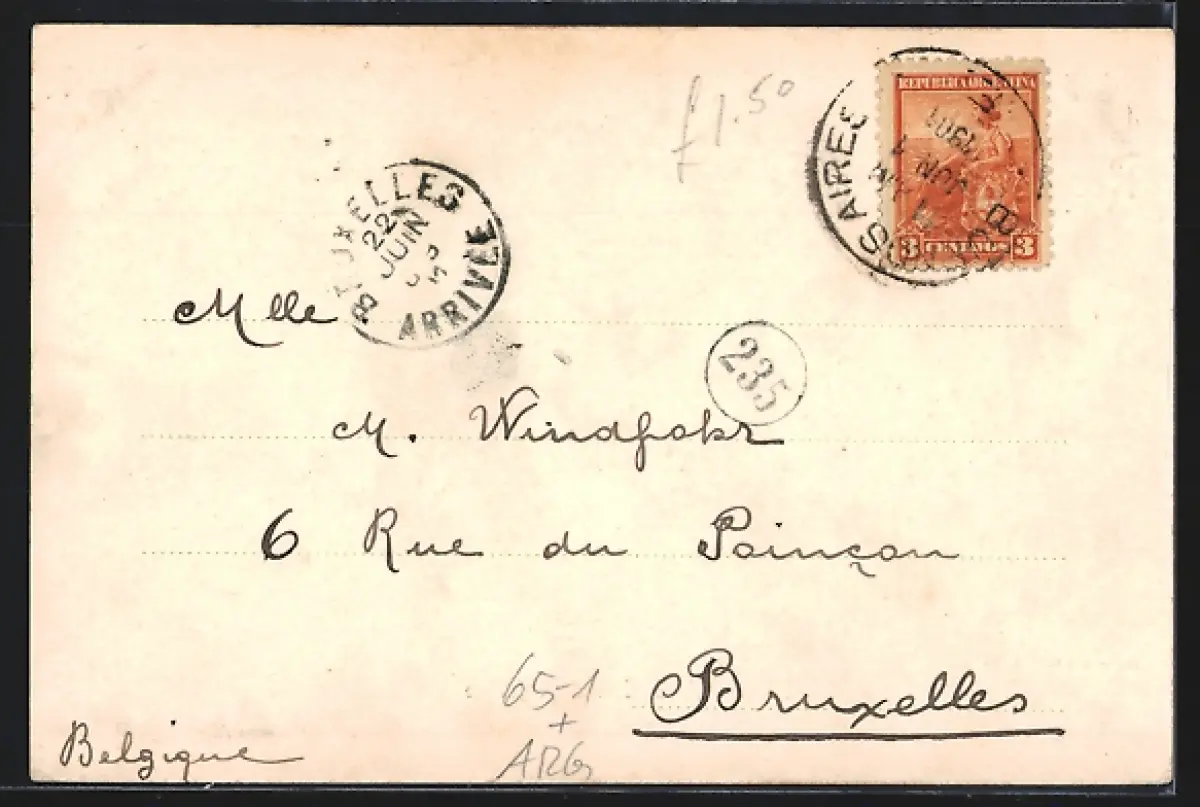 £1.50
REPUBLICA ARGENTINA
3 CENTAVOS 3
S AIRES
JUN 1
BRUXELLES
22
JUIN
ARRIVÉE
Mlle
235
M. Windfohr
6 Rue du Poinçon
65-1
+
ARG
Bruxelles
Belgique